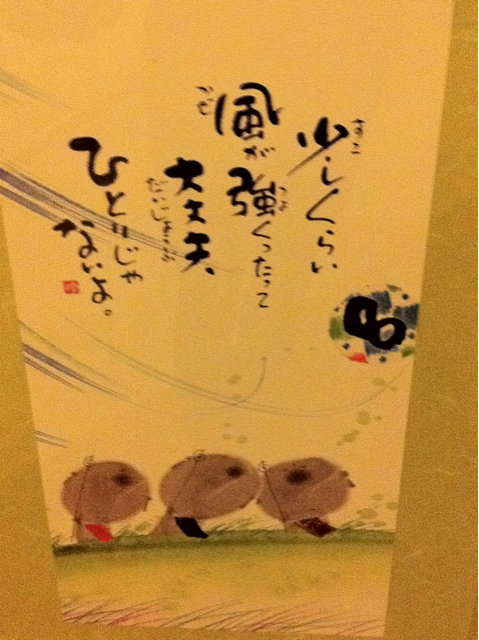 少しくらい
すこ
風が強くったって
かぜ
つよ
大丈夫、
だいじょうぶ
ひとりじゃ
ないよ。
8